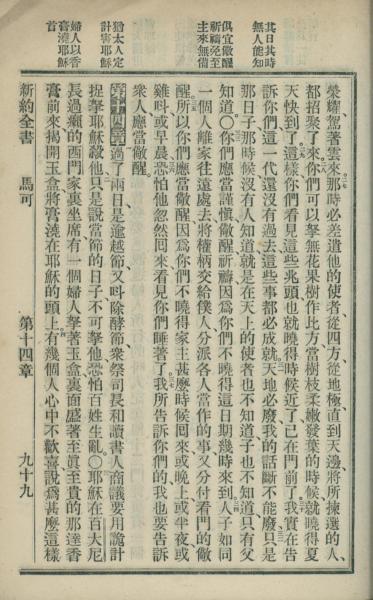 其日其時
無人能知
俱宜儆醒
祈禱免至
主來無備
猶太人定
計害耶穌
婦人以香
膏澆耶穌
首
榮耀駕著雲來、那時必差遣他的使者、從四方、從地極直到天邊、將所揀選的人、
都招聚了來、你們可以拏無花果樹作比方、當樹枝柔嫩發葉的時候、就曉得夏
天快到了、這樣、你們看見這些兆頭、也就曉得時候近了、已在門前了、我實在告
訴你們、這一代還沒有過去、這些事都必成就、天地必廢、我的話斷不能廢、只是
那日子、那時候、沒有人知道、就是在天上的使者也不知道、子也不知道、只有父
知道〇你們應當謹慎、儆醒祈禱、因爲你們不曉得這日期幾時來到、人子如同
一個人、離家往遠處去、將權柄交給僕人、分派各人當作的事、又分付看門的儆
醒、所以你們應當儆醒、因爲你們不曉得家主甚麼時候回來、或晚上、或半夜、或
雞呌、或早晨、恐怕他忽然回來、看見你們睡著了、我所告訴你們的、我也要告訴
衆人、應當儆醒。
第十四章過了兩日、是逾越節、又呌除酵節、衆祭司長和讀書人商議要用詭計
捉拏耶穌殺他、只是說、當節的日子不可拏他、恐怕百姓生亂。〇耶穌在百大尼
長過癩的西門家裏坐席、有一個婦人、拏著玉盒、裏面盛著至眞至貴的那達香
膏前來、揭開玉盒、將膏澆在耶穌的頭上、有幾個人心中不歡喜、說、爲甚麼這樣
新約全書 馬可 第十四章 九十九